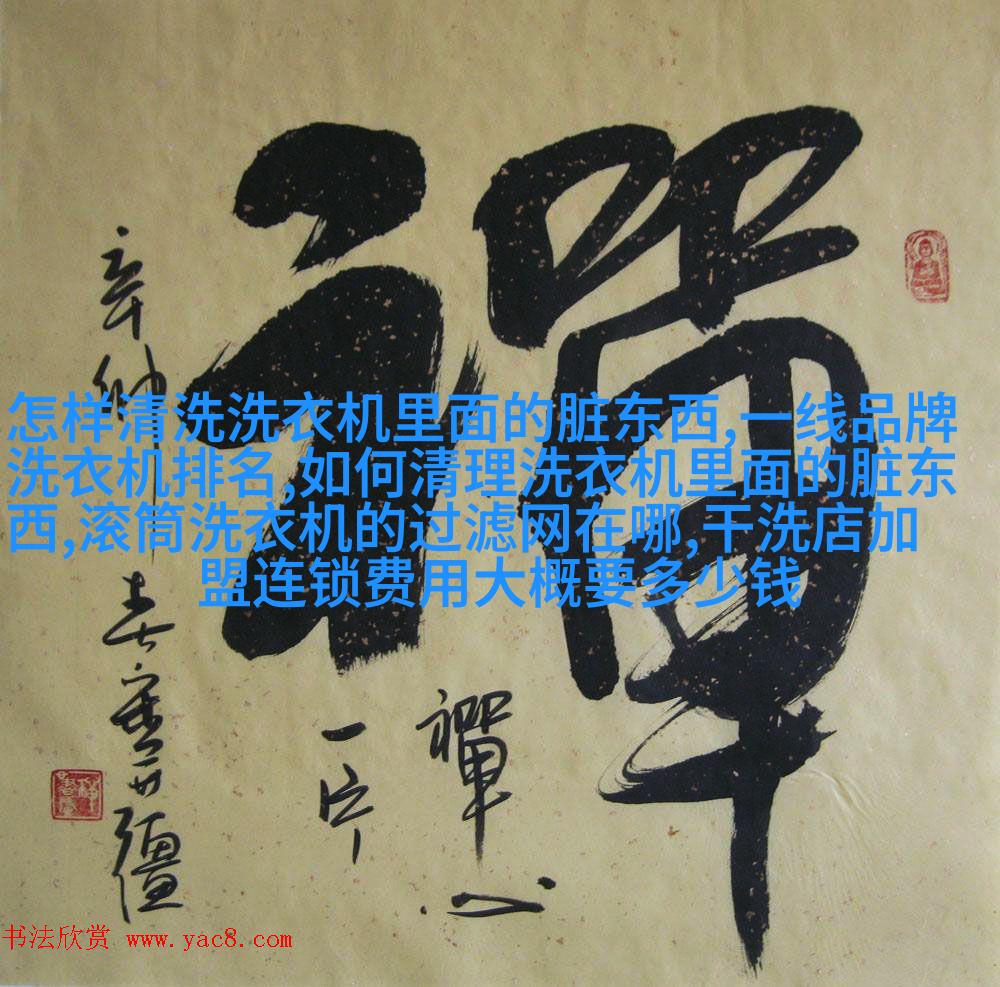 禪
禪心
一片
辛卯
春寒
怎样清洗洗衣机里面的脏东西,一线品牌
洗衣机排名,如何清理洗衣机里面的脏东
西,滚筒洗衣机的过滤网在哪,干洗店加
盟连锁费用大概要多少钱
书法欣赏 www.yac8.com